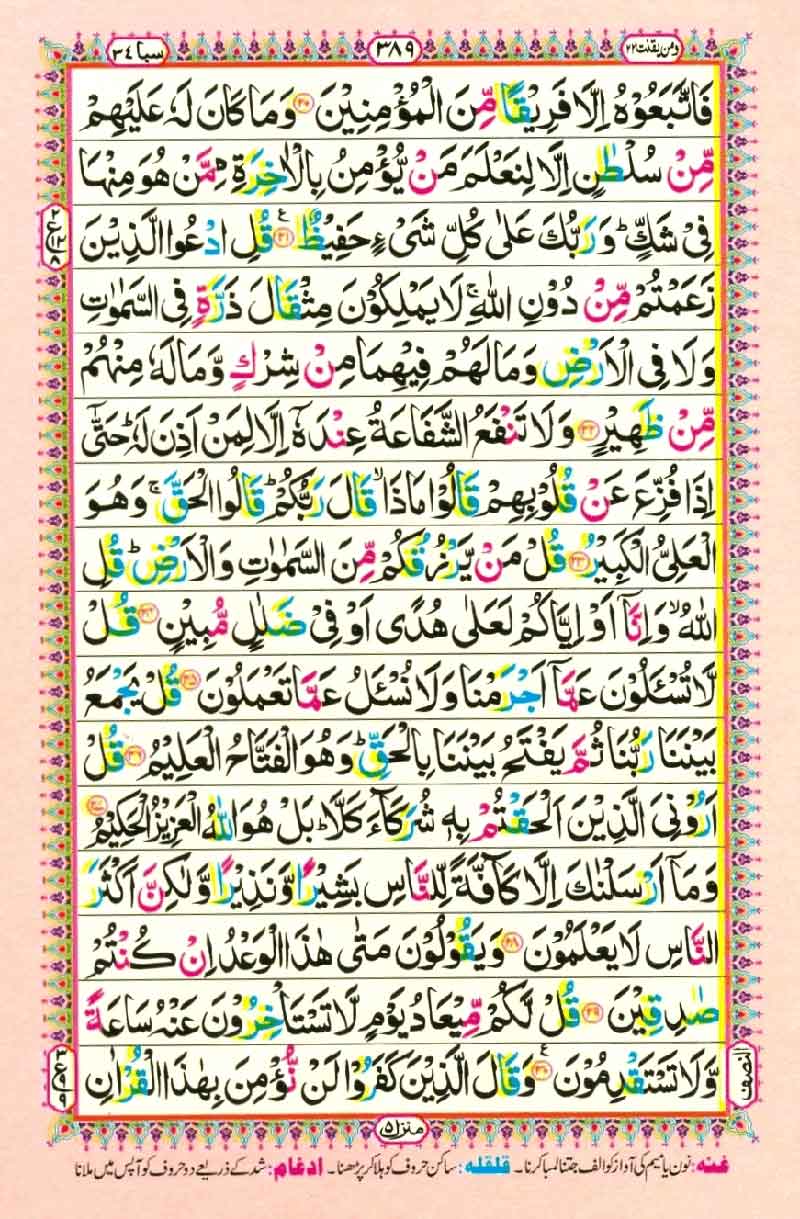 ومن يقنت ٢٢ ٣٨٩ سبا ٣٤
فَاتَّبَعُوْهُ اِلَّا فَرِيْقًا مِّنَ الْمُؤْمِنِيْنَ ﴿۲۰﴾ وَمَا كَانَ لَهٗ عَلَيْهِمْ
مِّنْ سُلْطٰنٍ اِلَّا لِنَعْلَمَ مَنْ يُّؤْمِنُ بِالْاٰخِرَةِ مِمَّنْ هُوَ مِنْهَا
فِيْ شَكٍّ ؕ وَرَبُّكَ عَلٰى كُلِّ شَيْءٍ حَفِيْظٌ ﴿۲۱﴾ قُلِ ادْعُوا الَّذِيْنَ
زَعَمْتُمْ مِّنْ دُوْنِ اللّٰهِ ۚ لَا يَمْلِكُوْنَ مِثْقَالَ ذَرَّةٍ فِي السَّمٰوٰتِ
وَلَا فِي الْاَرْضِ وَمَا لَهُمْ فِيْهِمَا مِنْ شِرْكٍ وَّمَا لَهٗ مِنْهُمْ
مِّنْ ظَهِيْرٍ ﴿۲۲﴾ وَلَا تَنْفَعُ الشَّفَاعَةُ عِنْدَهٗۤ اِلَّا لِمَنْ اَذِنَ لَهٗ ؕ حَتّٰۤى
اِذَا فُزِّعَ عَنْ قُلُوْبِهِمْ قَالُوْا مَاذَا ۙ قَالَ رَبُّكُمْ ؕ قَالُوا الْحَقَّ ۚ وَهُوَ
الْعَلِيُّ الْكَبِيْرُ ﴿۲۳﴾ قُلْ مَنْ يَّرْزُقُكُمْ مِّنَ السَّمٰوٰتِ وَالْاَرْضِ ؕ قُلِ
اللّٰهُ ۙ وَاِنَّاۤ اَوْ اِيَّاكُمْ لَعَلٰى هُدًى اَوْ فِيْ ضَلٰلٍ مُّبِيْنٍ ﴿۲۴﴾ قُلْ
لَّا تُسْـَٔلُوْنَ عَمَّاۤ اَجْرَمْنَا وَلَا نُسْـَٔلُ عَمَّا تَعْمَلُوْنَ ﴿۲۵﴾ قُلْ يَجْمَعُ
بَيْنَنَا رَبُّنَا ثُمَّ يَفْتَحُ بَيْنَنَا بِالْحَقِّ ؕ وَهُوَ الْفَتَّاحُ الْعَلِيْمُ ﴿۲۶﴾ قُلْ
اَرُوْنِيَ الَّذِيْنَ اَلْحَقْتُمْ بِهٖ شُرَكَآءَ كَلَّا ؕ بَلْ هُوَ اللّٰهُ الْعَزِيْزُ الْحَكِيْمُ ﴿۲۷﴾
وَمَاۤ اَرْسَلْنٰكَ اِلَّا كَآفَّةً لِّلنَّاسِ بَشِيْرًا وَّنَذِيْرًا وَّلٰكِنَّ اَكْثَرَ
النَّاسِ لَا يَعْلَمُوْنَ ﴿۲۸﴾ وَيَقُوْلُوْنَ مَتٰى هٰذَا الْوَعْدُ اِنْ كُنْتُمْ
صٰدِقِيْنَ ﴿۲۹﴾ قُلْ لَّكُمْ مِّيْعَادُ يَوْمٍ لَّا تَسْتَاْخِرُوْنَ عَنْهُ سَاعَةً
وَّلَا تَسْتَقْدِمُوْنَ ﴿۳۰﴾ وَقَالَ الَّذِيْنَ كَفَرُوْا لَنْ نُّؤْمِنَ بِهٰذَا الْقُرْاٰنِ
النصف
منزل ٥
غنه: نون یا میم کی آواز کو الف جتنا لمبا کرنا۔ قلقلہ: ساکن حروف کو ہلا کر پڑھنا۔ ادغام: شد کے ذریعے دو حروف کو آپس میں ملانا